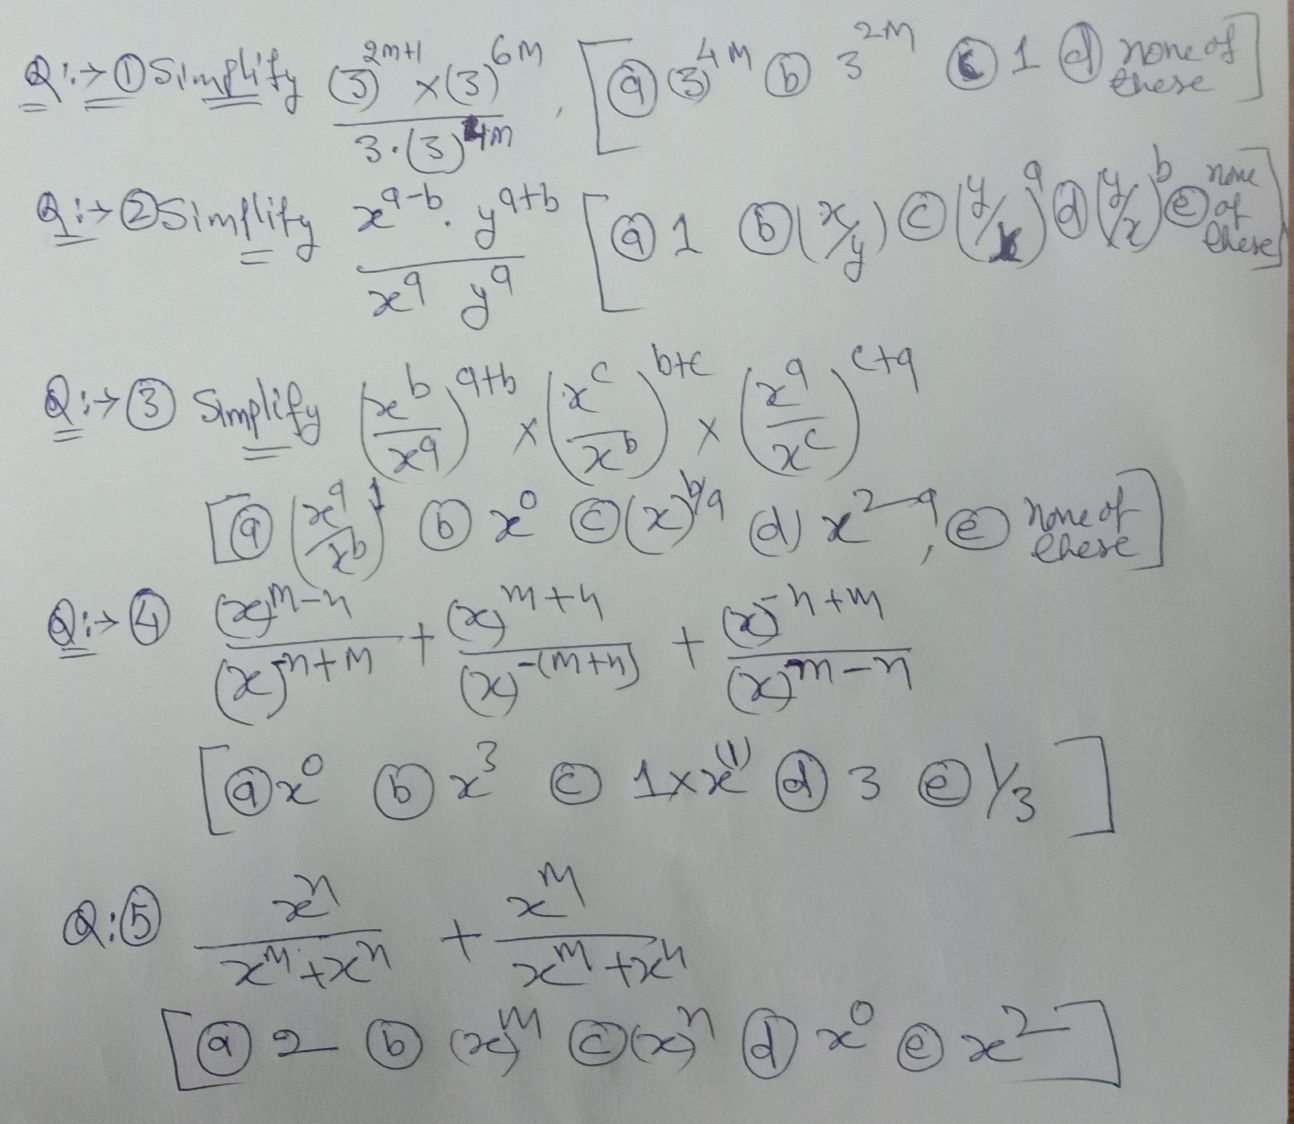 Q:→ ① Simplify (3)^{2m+1} × (3)^{6m} / 3·(3)^{4m} , [ⓐ (3)^{4m} ⓑ 3^{2m} ⓒ 1 ⓓ none of these]
Q:→ ② Simplify x^{a-b} · y^{a+b} / x^a y^a [ⓐ 1 ⓑ (x/y) ⓒ (y/x)^a ⓓ (y/x)^b ⓔ none of these]
Q:→ ③ Simplify (x^b/x^a)^{a+b} × (x^c/x^b)^{b+c} × (x^a/x^c)^{c+a}
[ⓐ (x^a/x^b)^1 ⓑ x^0 ⓒ (x)^{b/a} ⓓ x^{2-a}, ⓔ none of these]
Q:→ ④ (x)^{m-n} / (x)^{-n+m} + (x)^{m+n} / (x)^{-(m+n)} + (x)^{-n+m} / (x)^{m-n}
[ⓐ x^0 ⓑ x^3 ⓒ 1×x^{(1)} ⓓ 3 ⓔ 1/3]
Q:⑤ x^n / x^m+x^n + x^m / x^m+x^n
[ⓐ 2 ⓑ (x)^m ⓒ (x)^n ⓓ x^0 ⓔ x^2]